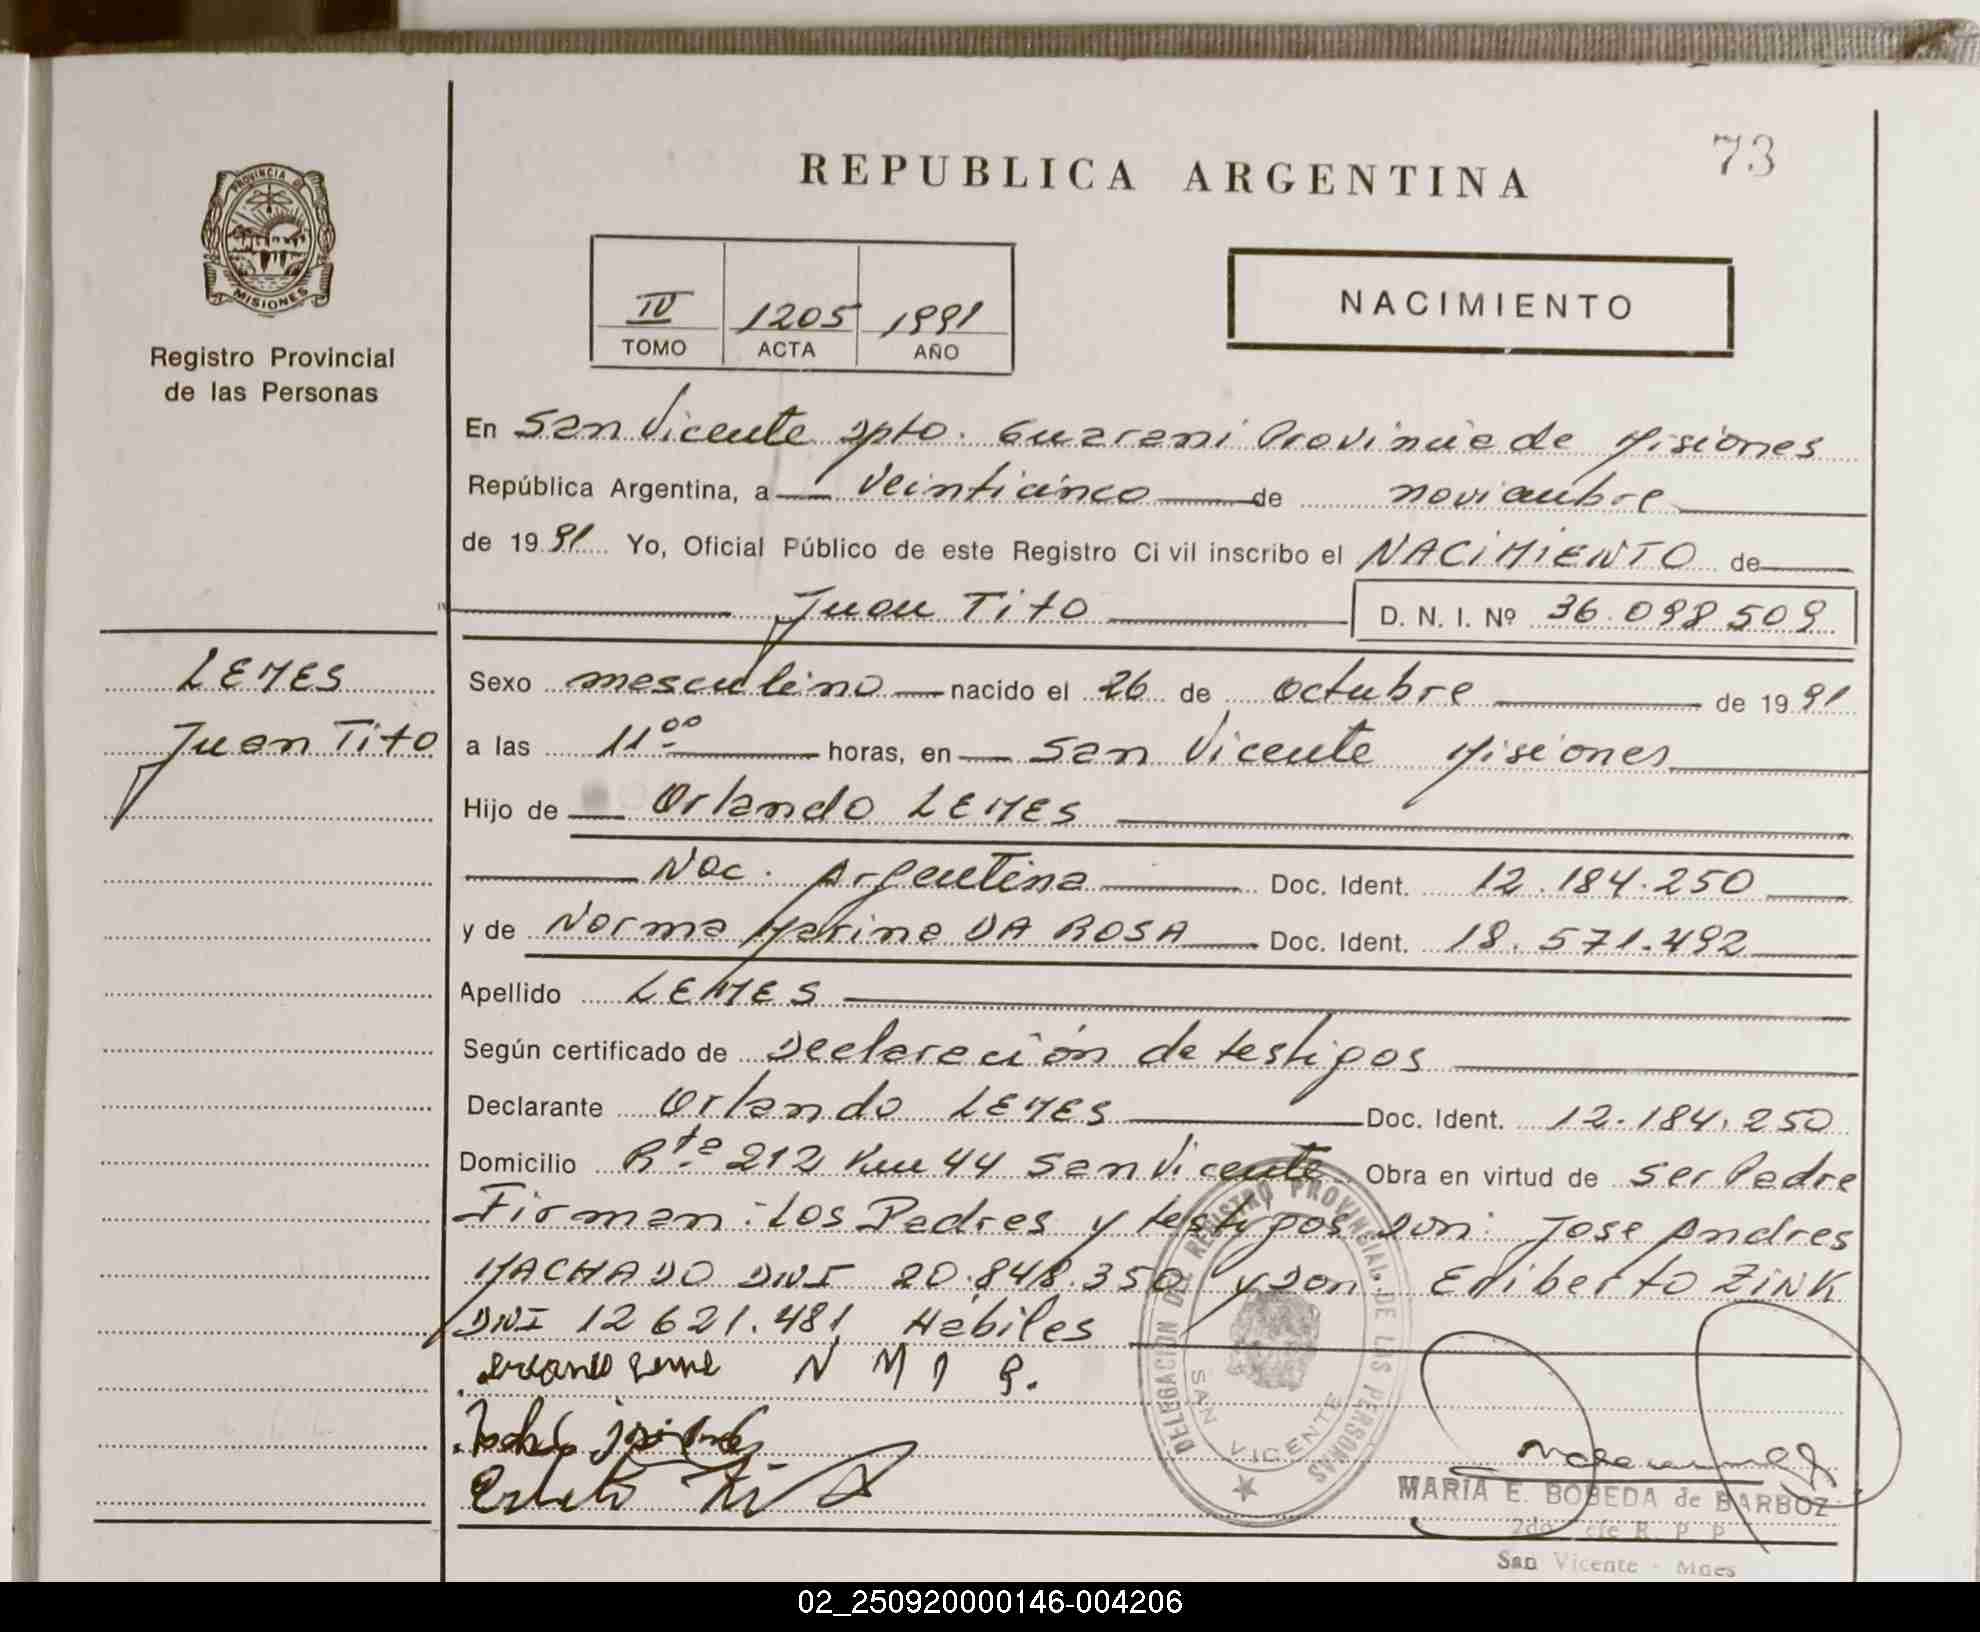 73
REPUBLICA ARGENTINA
PROVINCIA DE
MISIONES
Registro Provincial
de las Personas
IV 1205 1991
TOMO ACTA AÑO
NACIMIENTO
En San Vicente Dpto. Guarani Provincia de Misiones
República Argentina, a veinticinco de noviembre
de 1991 Yo, Oficial Público de este Registro Ci vil inscribo el NACIMIENTO de
Juan Tito D. N. I. Nº 36.098509
LEMES
Juan Tito
Sexo masculino nacido el 26 de octubre de 1991
a las 11 00 horas, en San Vicente Misiones
Hijo de Orlando LEMES
Nac. Argentina Doc. Ident. 12.184.250
y de Norma Marina DA ROSA Doc. Ident. 18.571.492
Apellido LEMES
Según certificado de Declaración de testigos
Declarante Orlando LEMES Doc. Ident. 12.184.250
Domicilio Rta 212 Km 44 San Vicente Obra en virtud de ser Padre
Firman: Los Padres y testigos Don: Jose Andres
MACHADO DNI 20.848.350 y Don Eriberto ZINK
DNI 12 621.481 Habiles
N M D R.
DELEGACION DEL REGISTRO PROVINCIAL DE LAS PERSONAS
SAN VICENTE
MARIA E. BOBEDA de BARBOZ
2do. R. P. P.
San Vicente - Mnes
02_250920000146-004206